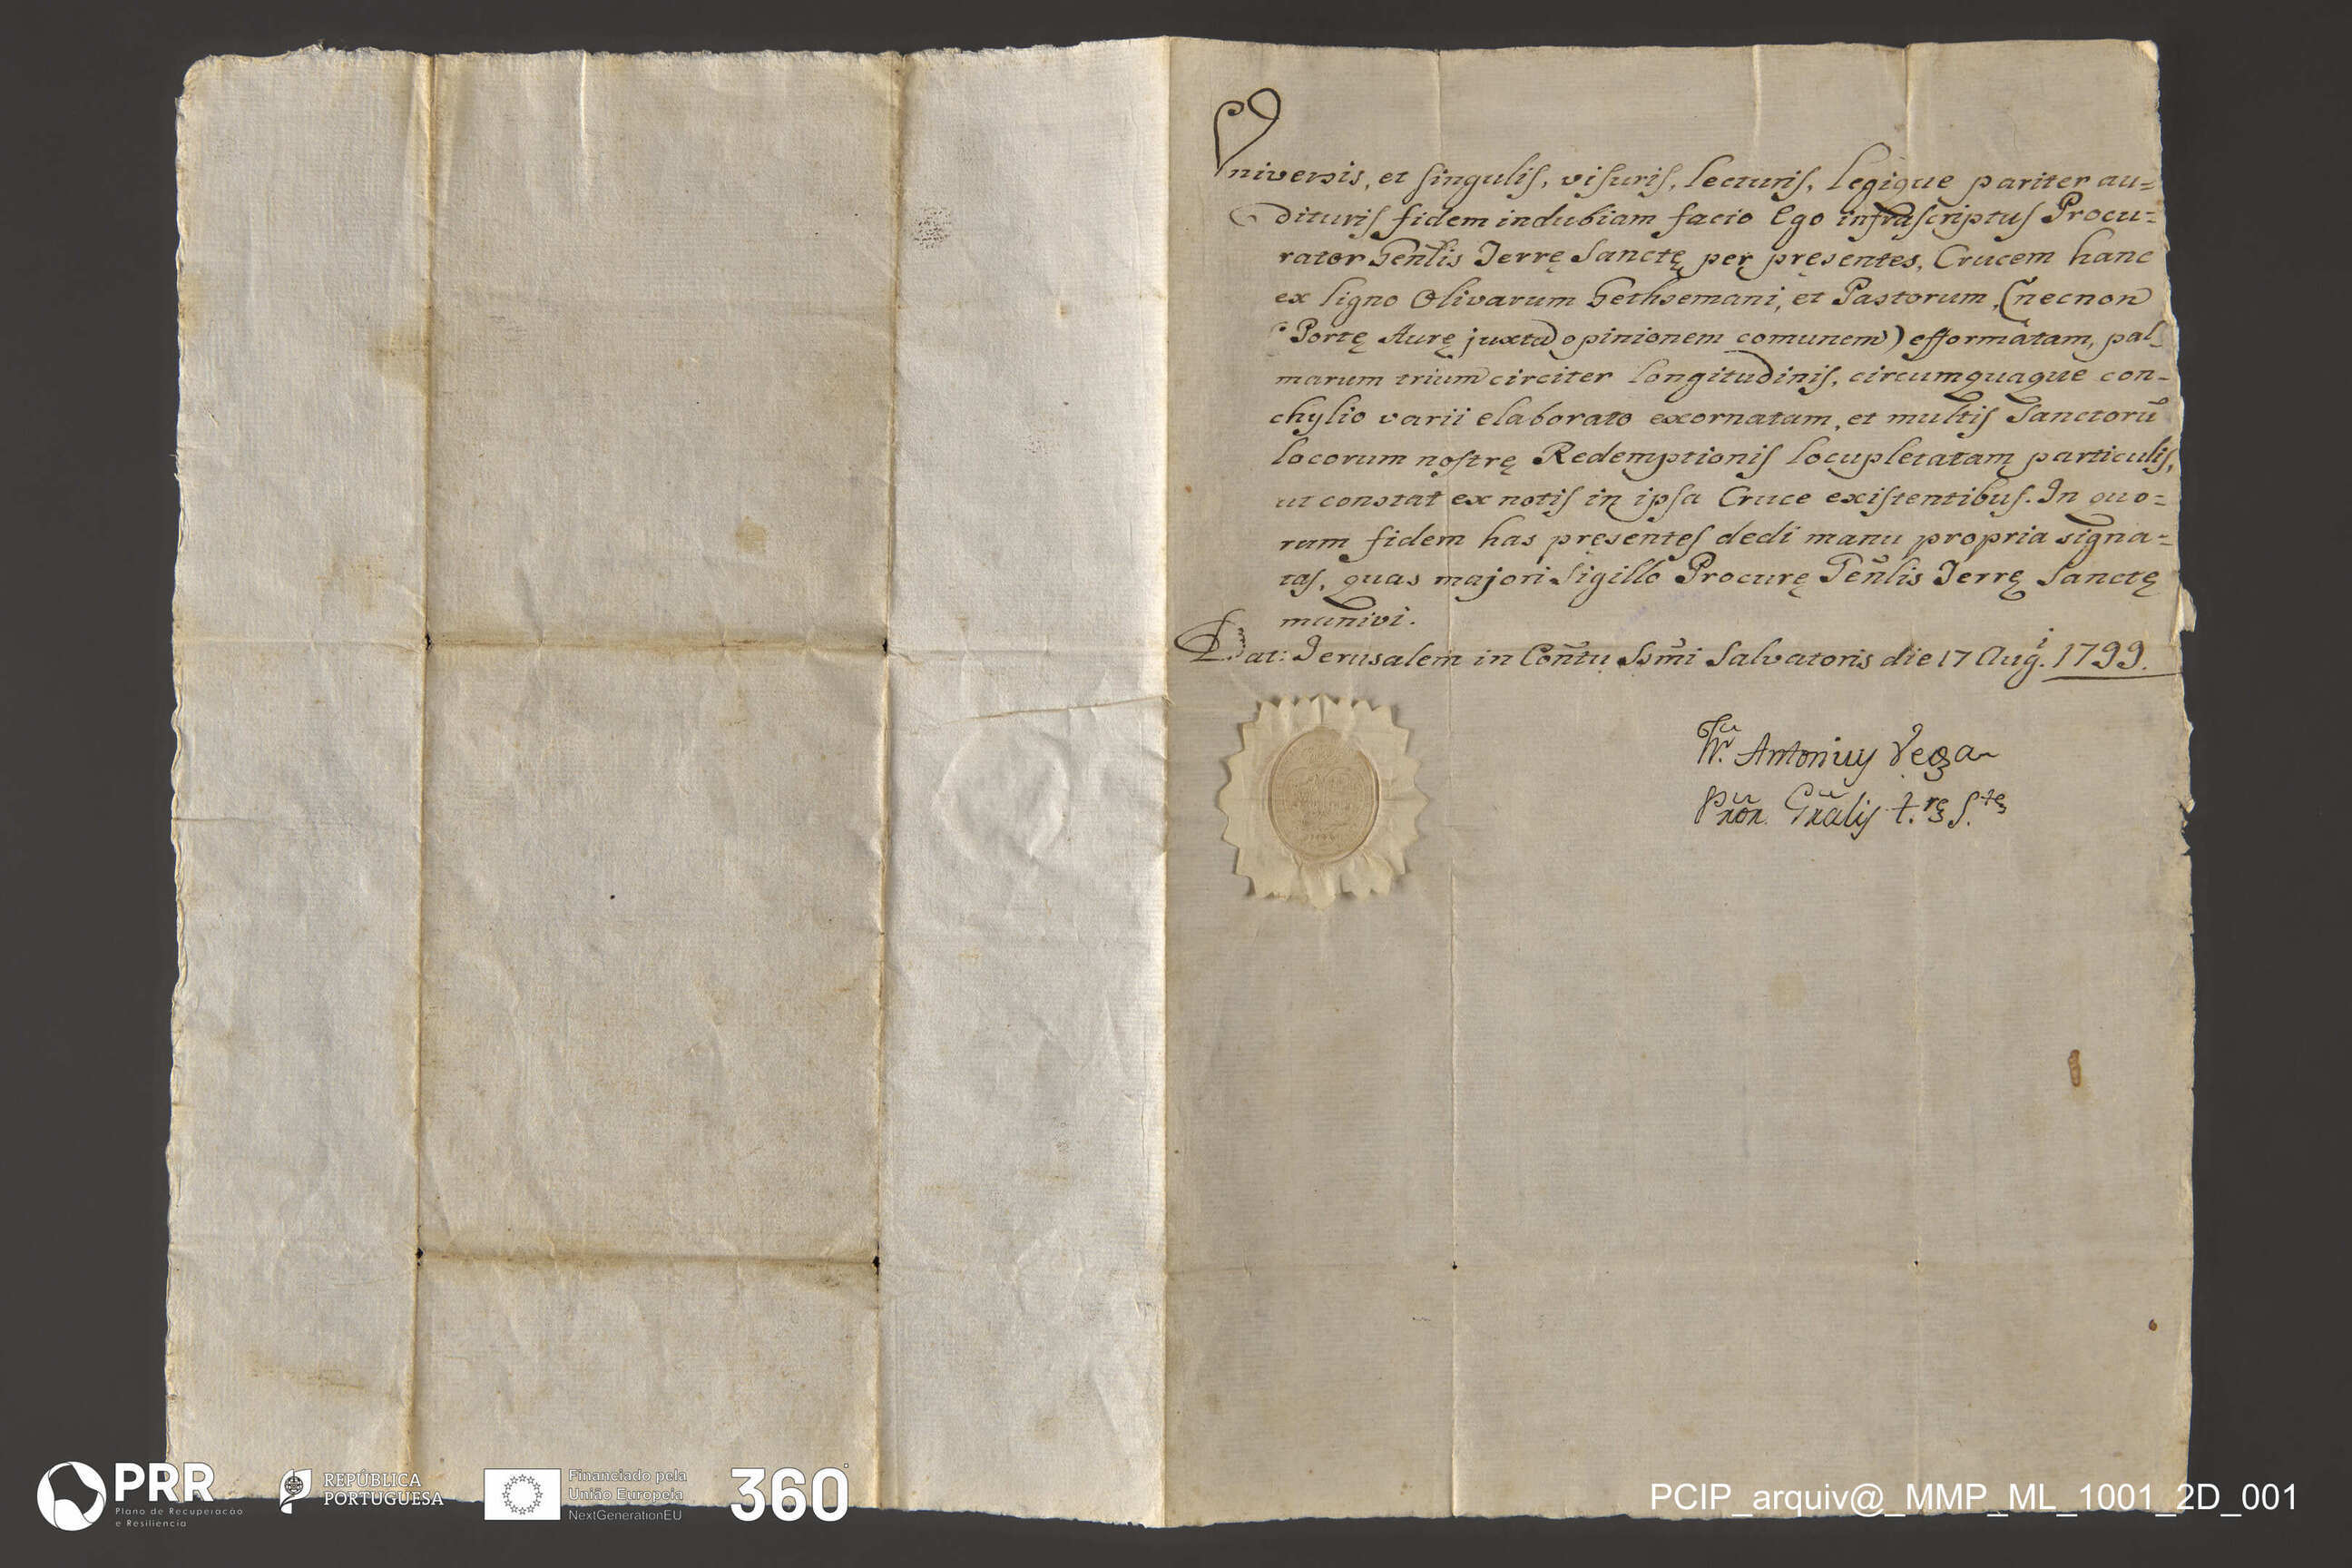 Universis, et singulis, visuris, lecturis, legique pariter au=
dituris fidem indubiam facio Ego infrascriptus Procu=
rator Genlis Terrę Sanctę per pręsentes, Crucem hanc
ex ligno Olivarum Gethsemani, et Pastorum, (necnon
Portę Aurę juxta opinionem comunem) efformatam, pal_
marum trium circiter longitudinis, circumquaque con-
chylio varii elaborato exornatam, et multis Sanctorū
locorum nostrę Redemptionis locupletatam particulis,
ut constat ex notis in ipsa Cruce existentibus. In quo=
rum fidem has pręsentes dedi manu propria signa=
tas, quas majori Sigillo Procurę Genlis Terrę Sanctę
munivi.
Dat: Jerusalem in Contu Ssmi Salvatoris die 17 Augi. 1799.
Fr. Antonius Vega
Pror. Gralis t.rę S.tę
PRR
Plano de Recuperação
e Resiliência
REPÚBLICA
PORTUGUESA
Financiado pela
União Europeia
NextGenerationEU
360°
PCIP_arquiv@_MMP_ML_1001_2D_001